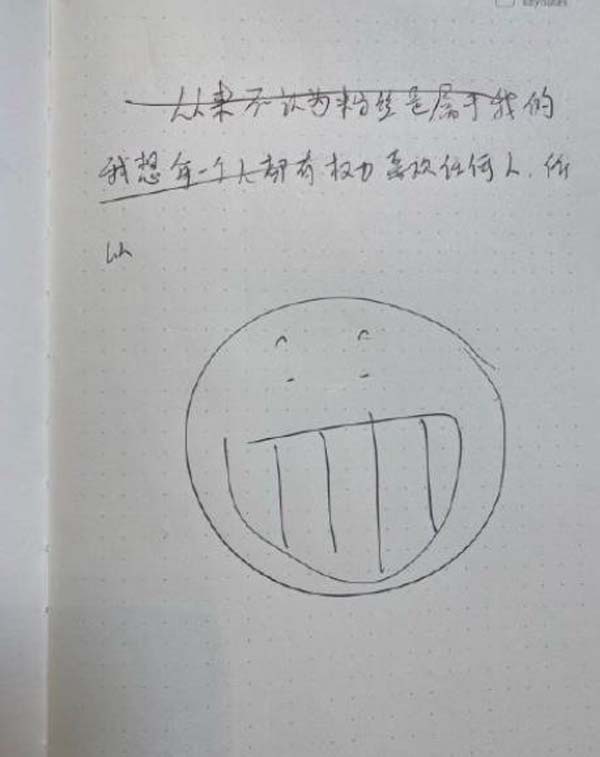 keynotes
从来不认为粉丝是属于我的
我想每一个人都有权力喜欢任何人，所
以